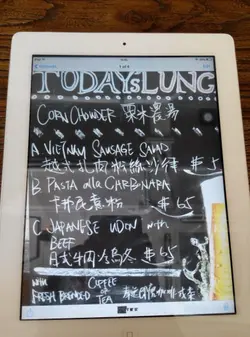 TODAY's LUNG
CORN CHOWDER 粟米農湯
A VIETNAM SAUSAGE SALAD
越式扎肉粉絲沙律 $5
B PASTA alla CARBONARA
卡邦尼意粉 $65
C JAPANESE UDON with
BEEF
日式牛肉烏冬 $65
with
FRESH BREWED COFFEE
or TEA